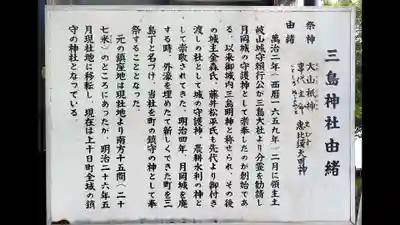 三島神社由緒
祭神
大山祇神
事代主命 恵比須大明神
由緒
萬治二年(西暦一六五九年)二月に領主土
岐山城守頼行公が三島大社より分霊を勧請し
月岡城の守護神として崇奉したのが創始であ
る、以来御城内三島明神と称せられ、その後
の城主金森氏、藤井松平氏も先代より御付き
渡しの社として城の守護神、農耕水利の神と
して崇敬されてきた。明治四年、月岡城を廃
する時、外濠を埋めたて新しくできた町を三
島丁と名つけ、当社を町の鎮守の神として奉
祭することとなった。
元の鎮座地は現社地より南方十五間(二十
七米)のところにあったが、明治二十六年五
月現社地に移転し、現在は上十日町全域の鎮
守の神社となっている。